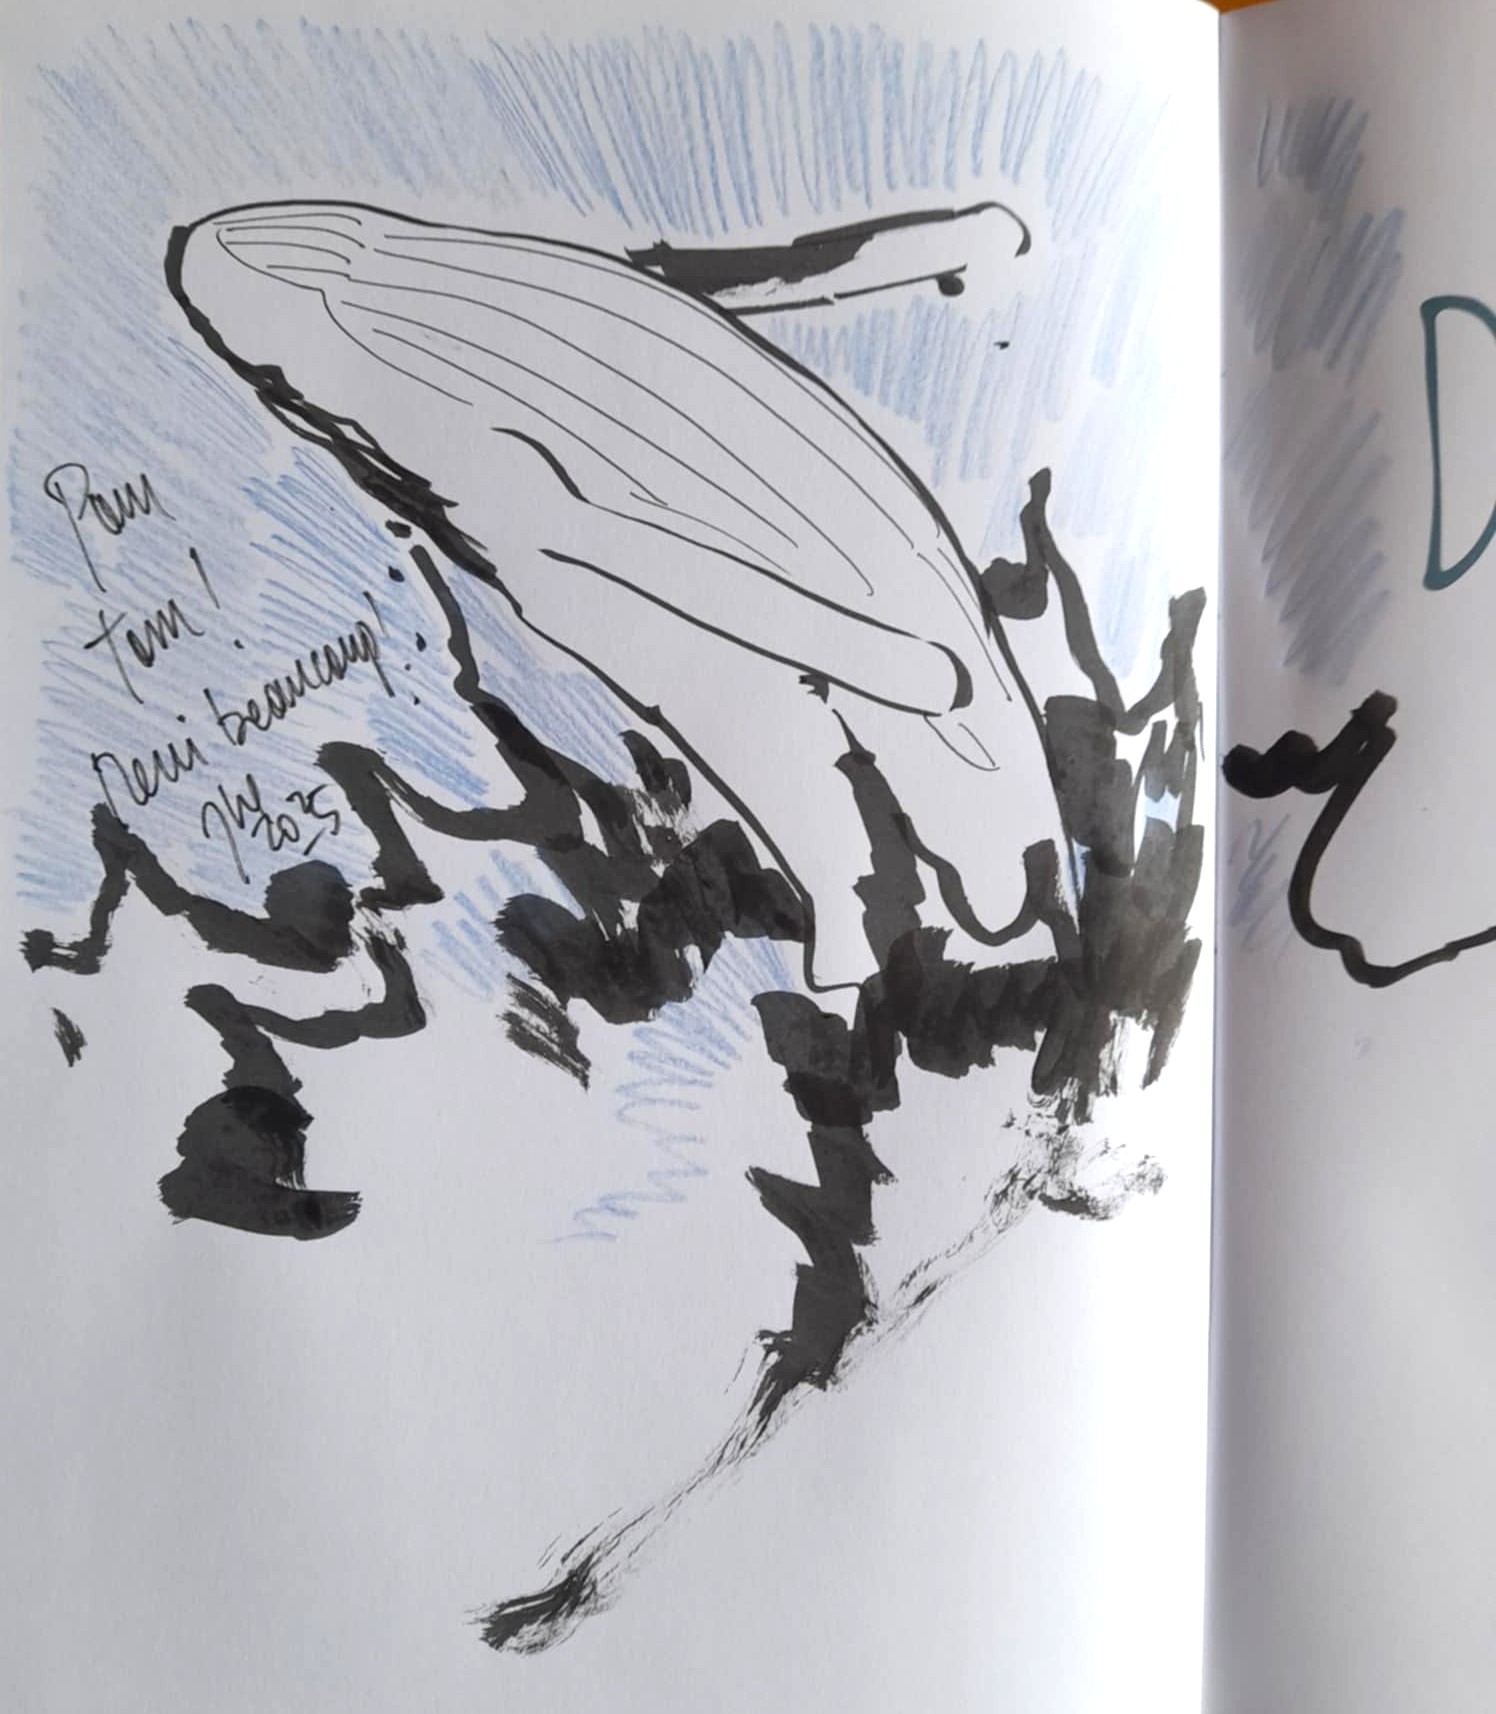 Pour
Tom!
Merci beaucoup!
2025
D